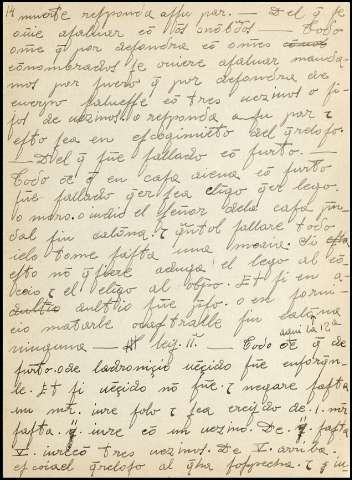 14 muerte responda assu par. — Del q̃ se
q̃sie assaluar cõ los nõbdos — Todo
ome q̃ por desondra cõ omes
cõnombrados se quiere assaluar manda-
mos por fuero q̃ por desondra de
cuerpo salvesse cõ tres vezinos o fi-
jos de vezinos o responda a su par ⁊
esto sea en escogimiẽto del q̃reloso.
— Del q̃ fue fallado cõ furto. —
Todo oẽ q̃ en casa aiena cõ furto
fue fallado q̃er sea cligo q̃er lego.
o moro. o iudio el señor dela casa
sin calõna. ⁊ q̃ntol fallare todo
ielo tome fasta una meaia. Si
esto nõ q̃siere aduga el lego al cõ-
ceio ⁊ el cligo al obpo. Et si en a-
dulterio fue p̃so. o en forni-
cio matarle o castralle sin calõna
ninguna — leg. II. — Todo oẽ q̃ de
aqui la 12ª
furto. o de ladronicio uẽçido fue enforquẽ-
le. Et si uẽçido nõ fue. ⁊ negare fasta
un mr. iure solo ⁊ sea creydo de .1. mr
fasta. ij. iure cõ un vezino. De ij. fasta
V. iure cõ tres vezinos. De V. arriba.
escoia el q̃reloso al q̃ha sospecha. ⁊ q̃ iu